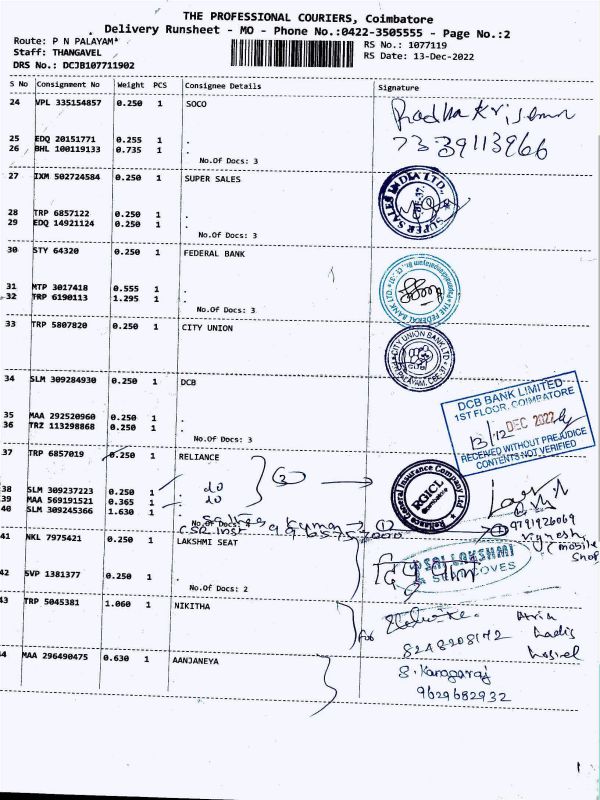 THE PROFESSIONAL COURIERS, Coimbatore
Delivery Runsheet - MO - Phone No.:0422-3505555 - Page No.:2
Route: P N PALAYAM*
RS No.: 1077119
Staff: THANGAVEL
RS Date: 13-Dec-2022
DRS No.: DCJB107711902
S No Consignment No Weight PCS Consignee Details Signature
24 VPL 335154857 0.250 1 SOCO
25 EDQ 20151771 0.255 1 .
26 BHL 100119133 0.735 1 .
No.Of Docs: 3
27 IXM 502724584 0.250 1 SUPER SALES
SUPER SALES INDIA LTD.,
28 TRP 6857122 0.250 1 .
29 EDQ 14921124 0.250 1 .
No.Of Docs: 3
30 STY 64320 0.250 1 FEDERAL BANK
THE FEDERAL BANK LTD.
31 MTP 3017418 0.555 1 .
32 TRP 6190113 1.295 1 .
No.Of Docs: 3
33 TRP 5807820 0.250 1 CITY UNION
CITY UNION BANK LTD
34 SLM 309284930 0.250 1 DCB
DCB BANK LIMITED
1ST FLOOR, COIMBATORE
13/12 DEC 2022
RECEIVED WITHOUT PREJUDICE
CONTENTS NOT VERIFIED
35 MAA 292520960 0.250 1 .
36 TRZ 113298868 0.250 1 .
No.Of Docs: 3
37 TRP 6857019 0.250 1 RELIANCE
3
Reliance General Insurance Company Ltd
RGICL
38 SLM 309237223 0.250 1 . do
39 MAA 569191521 0.365 1 . do
40 SLM 309245366 1.630 1 .
No.Of Docs:
9791926069
Vignesh
(mobile
shop
41 NKL 7975421 0.250 1 LAKSHMI SEAT
SAI LAKSHMI
42 SVP 1381377 0.250 1 .
No.Of Docs: 2
43 TRP 5045381 1.060 1 NIKITHA
for
8248208172
ladis
hostel
44 MAA 296490475 0.630 1 AANJANEYA
S. Kanagaraj
9629682932